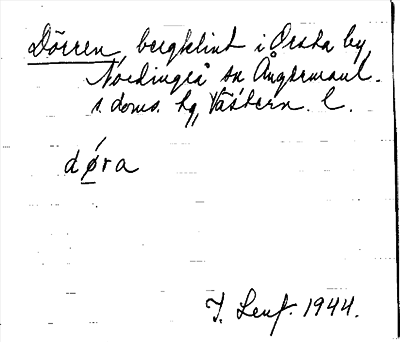 Dörren, bergklint i Orsta by,
Nordingrå sn Ångermanl.
s. doms. hg, Västern. l.
dǿra
J. Lenf. 1944.